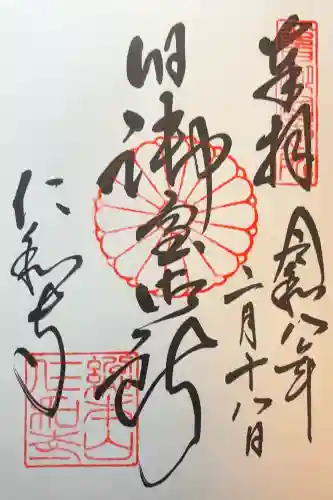 奉拝
令和八年
二月十八日
旧御室御所
仁和寺
総本山
仁和寺